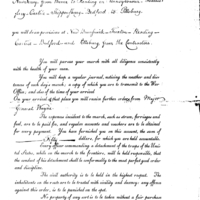 you will draw provisions at New Brunswick — Trenton — Reading —
Carlisle — Bedford — and Pittsburg from the Contractors.
You will pursue your march with all diligence consistently
with the health of your men.
You will keep a regular journal, noticing the weather and dis-
tances of each day's march, a copy of which you are to transmit to the War
Office, and also of the time of your arrival.
On your arrival at that place you will receive further orders from Major
General Wayne.
The expenses incident to the march, such as straw, forriage and
fuel, are to be paid for, and regular accounts and vouchers are to be obtained
for every payment. You have furnished you on this account, the sum of
Fifty dollars, for which you are held accountable.
Every officer commanding a detachment of the troops of the Uni-
ted States, while on the march to the frontiers, will be held responsible, that
the conduct of his detachment shall be conformably to the most perfect good order
and discipline.
The civil authority is to be held in the highest respect. The
inhabitants on the route are to be treated with civility and decency: any offence
against this order, is to be punished on the spot.
No property of any sort is to be taken without a fair purchase